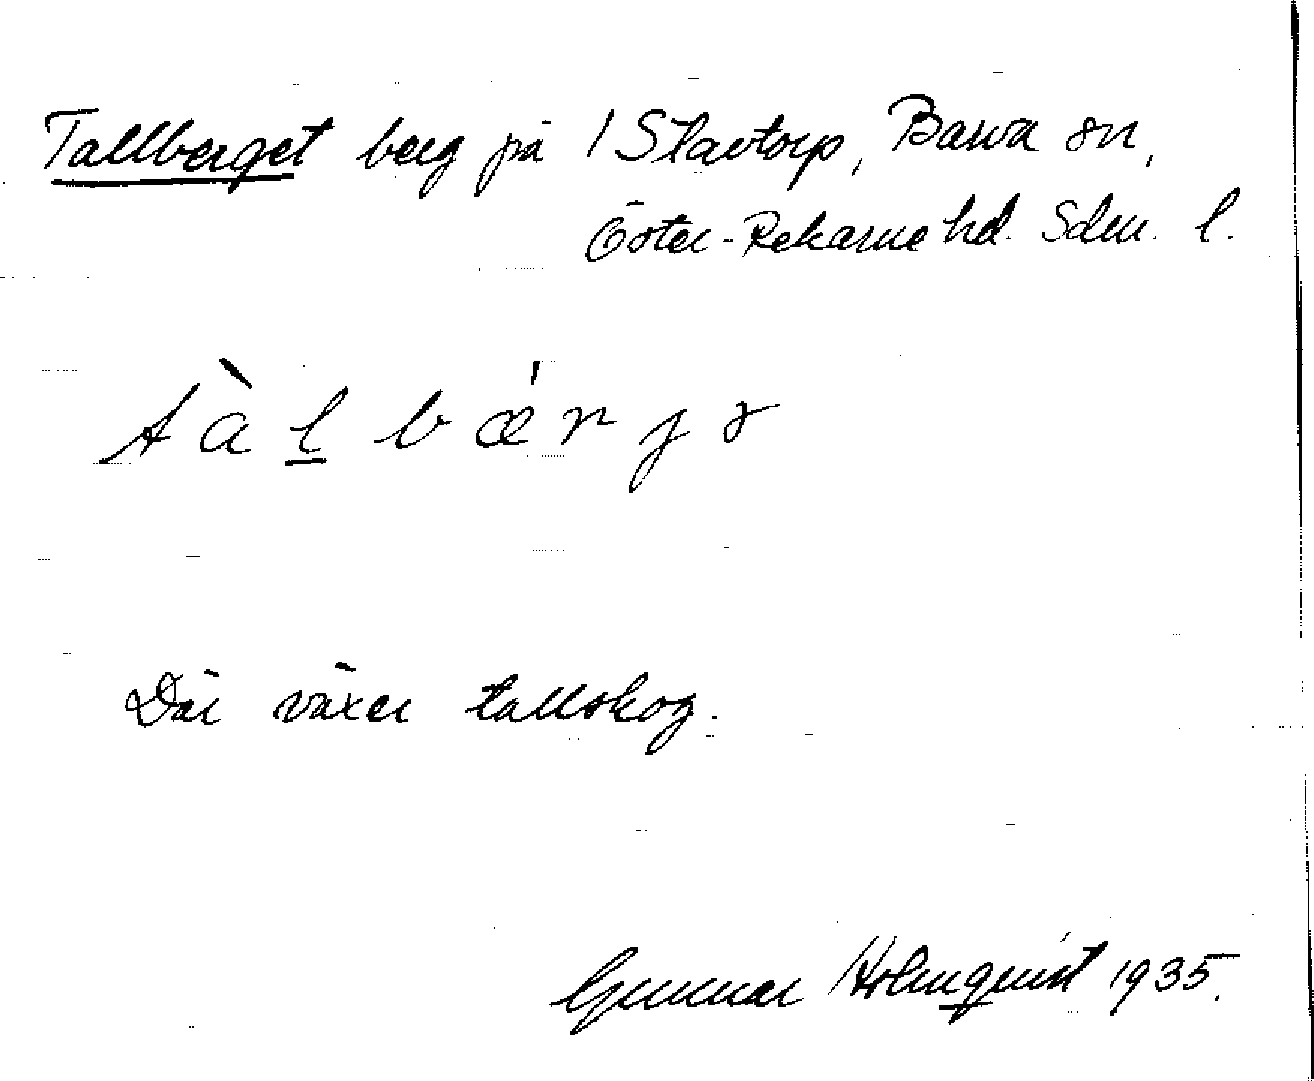 Tallberget berg på 1 Stavtorp, Barva sn,
Öster-Rekarne hd. Sdm. l.
tàl̲bǽrjə
Där växer tallskog.
Gunnar Holmquist 1935.